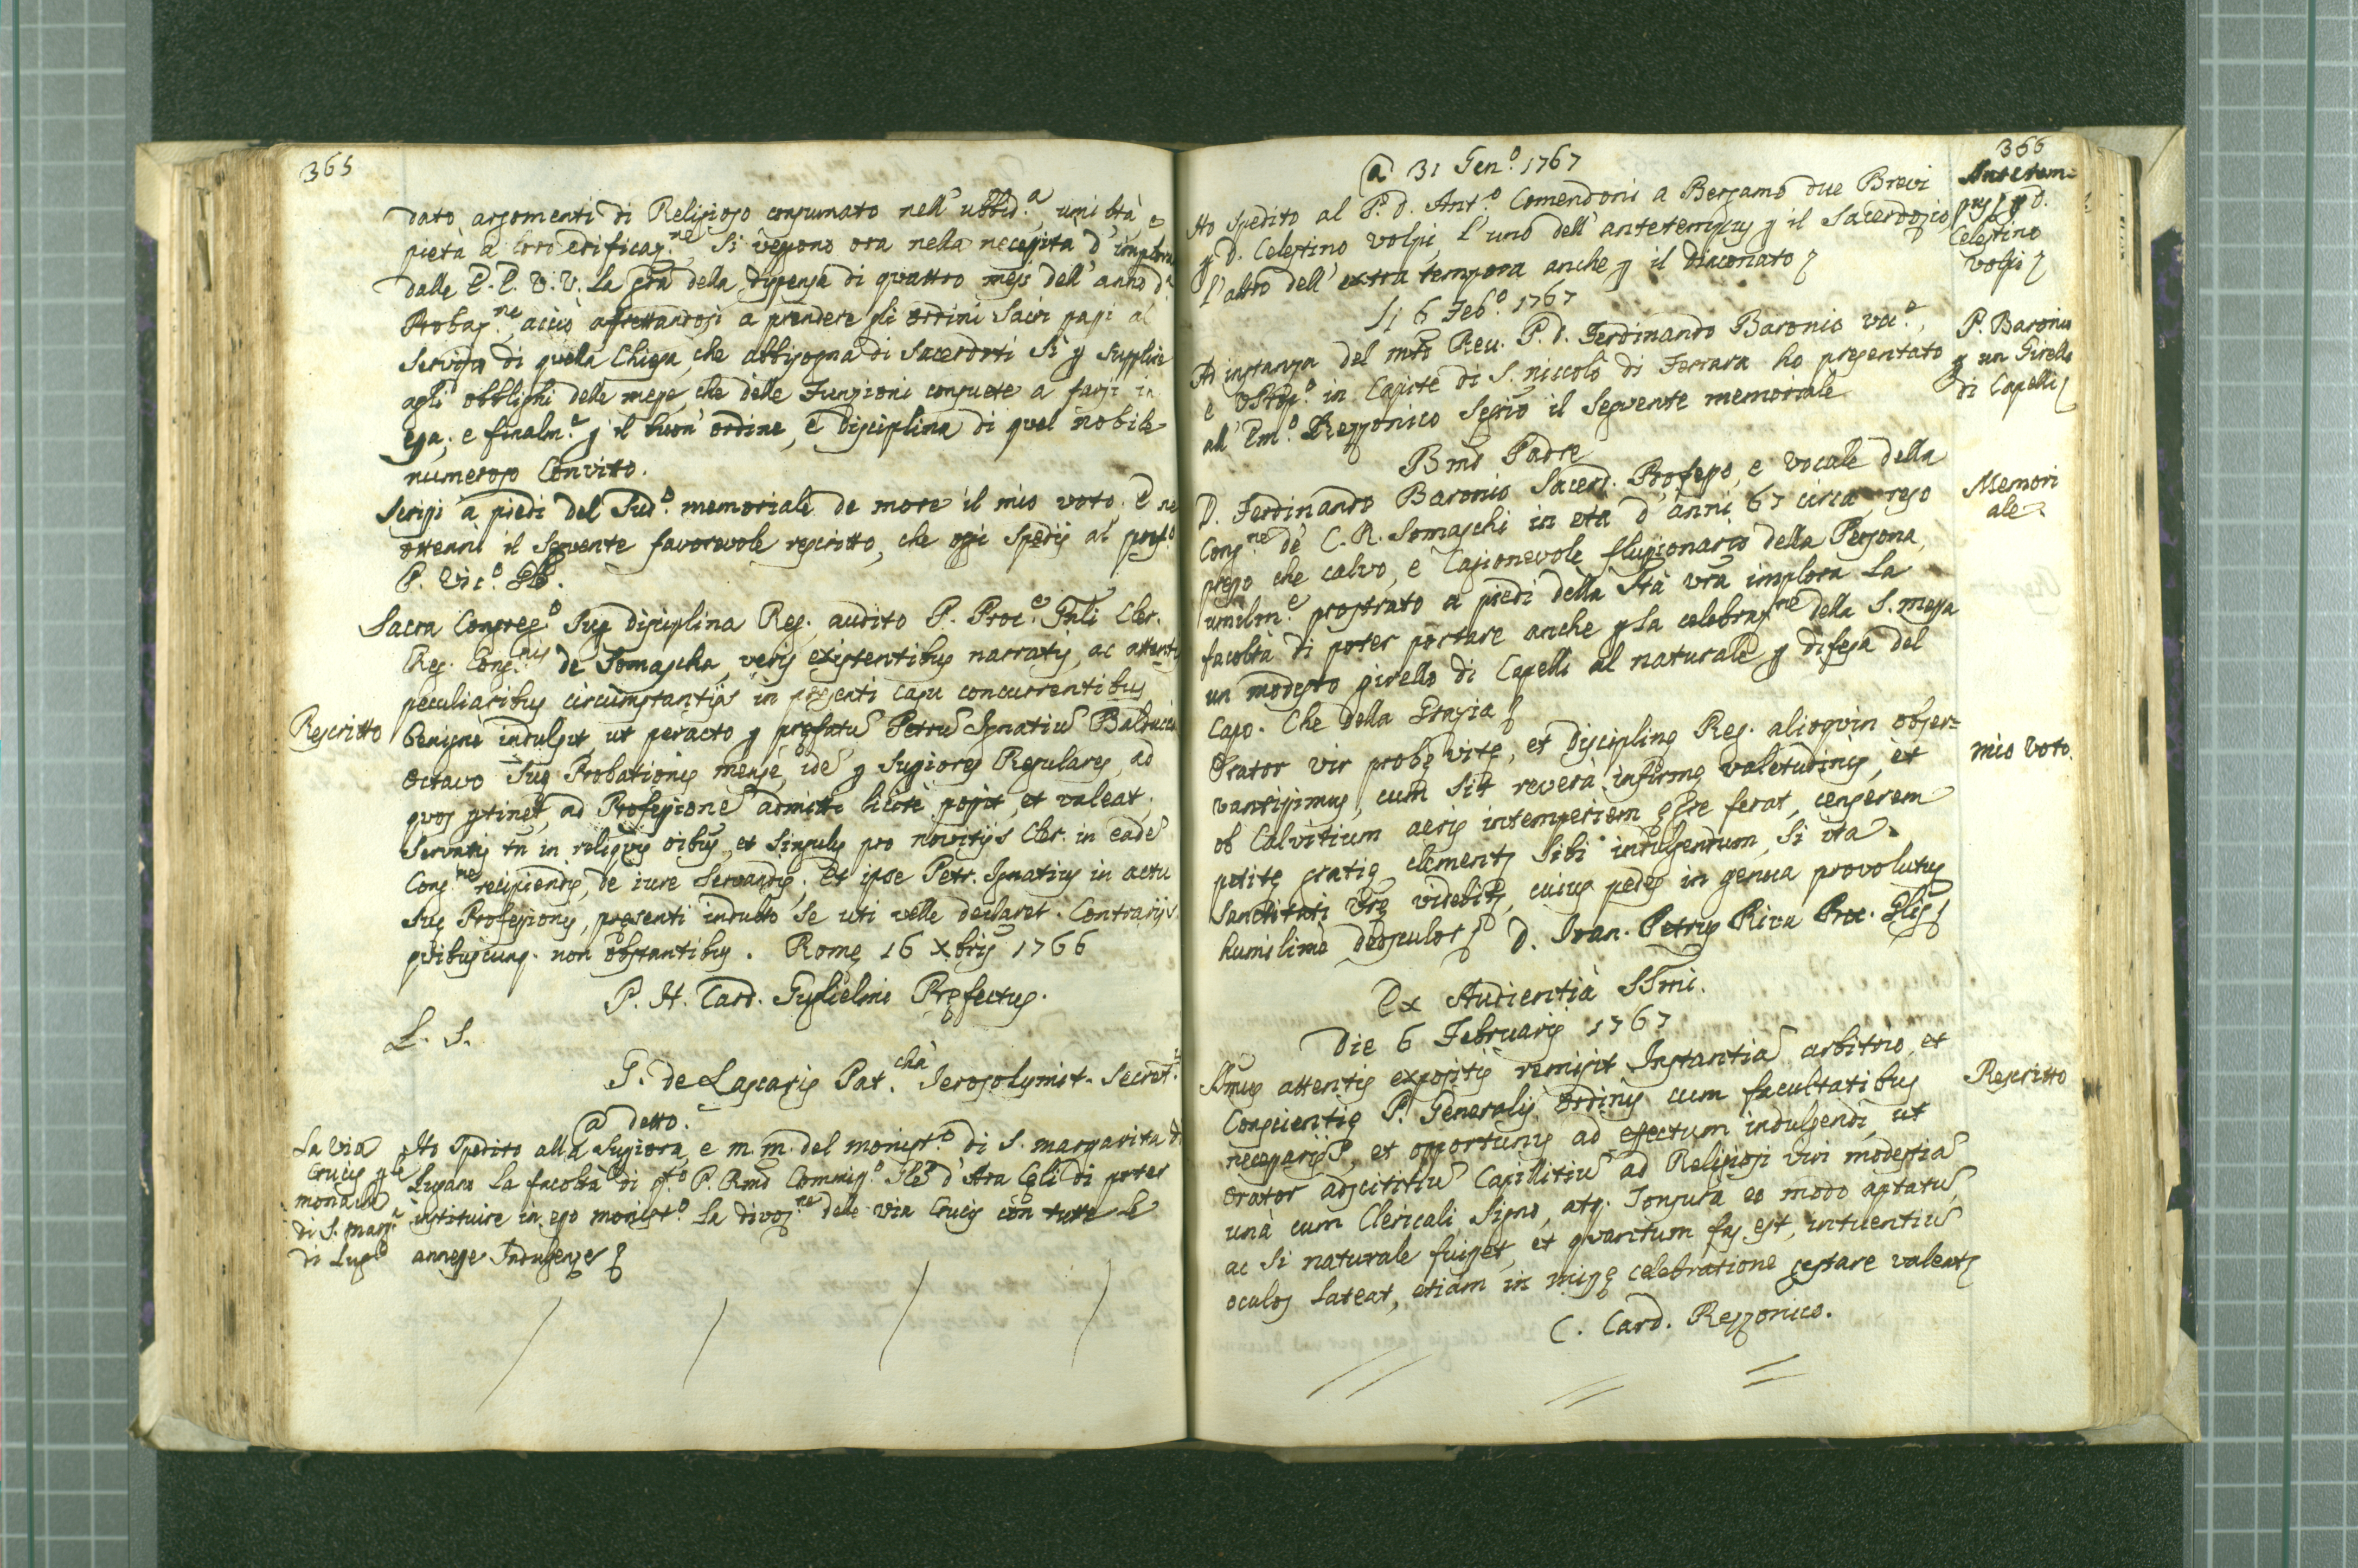 365
dato argomenti di Religioso consumato nell' ubbid.a, umiltà, e
pietà a loro edificaz.ne, si vegono ora nella necessità d'implorar
dalle E. E. V. V. la gra della dispensa di quattro mesi dell' anno di
Probaz.ne, acciò affrettandosi a prendere gli ordini Sacri passi al
servizio di quella Chiesa, che abbisogna di Sacerdoti sì p supplire
agli obblighi delle messe, che delle Funzioni consuete a farsi in
essa; e finalm.e p il buon' ordine, e Disciplina di quel nobile
numeroso Convitto.
Scrissi a piedi del Sud.o memoriale de more il mio voto. E ne
ottenni il seguente favorevole rescritto, che oggi spedij al pref.o
P. Vic.o Gle.
Sacra Congreg.o Sup Disciplina Reg., audito P. Proc.e Gnli Cler.
Reg. Cong.nis de Somascha, veris existentibus narratis, ac attentis
peculiaribus circumstantijs in presenti casu concurrentibus
Rescritto
benigne indulsit, ut peracto p prefatu Petru Ignatiu Balducciu
octavo suę Probationis mense, ide p Supiores Regulares, ad
quos ptinet, ad Professione admitti licitè possit, et valeat;
Servatis tn in reliquis oibus, et singulis pro novitijs Cler. in eade
Cong.ne recipiendis, de iure servandis. Et ipse Petr. Ignatius in actu
suę Professionis, presenti indulto se uti velle declaret. Contrarijs
quibuscunq. non obstantibus. Romę 16 Xbris 1766
P. H. Card. Guglielmi Pręfectus.
L. S.
T. de Lascaris Pat.cha Ierosolymit. Secret.s
a detto.
La via
Crucis p le
monache
di S. Marg.a
di Lug.o
Ho spedito alla Supiora, e m. m. del monist.o di S. margarita di
Lugano la facoltà di q.to P. Rmo Commiss.o Gle d'Ara Cęli di poter
instituire in esso monist.o la divoz.ne della via Crucis con tutte le
annesse Indulgenze
366
a 31 Gen.o 1767
Antetem=
pus p p D.
Celestino
Volpi
Ho spedito al P. D. Ant.o Comendoni a Bergamo due Brevi
p D. Celestino Volpi, l'uno dell' antetempus p il Sacerdozio,
l'altro dell' extra tempora anche p il Diaconato
Li 6 Feb.o 1767
P. Baronio
p un Girello
di Capelli
Ad instanza del mto Rev. P. D. Ferdinando Baronio voc.e,
in Capite di S. Niccolò di Ferrara ho presentato
all' Em.o Rezzonico Segrio il seguente memoriale
Bmo Padre
Memori
ale
D. Ferdinando Baronio Sacerd. Professo, e vocale della
Cong.ne de C. R. Somaschi in età d'anni 67 circa, reso
presso che calvo, e cagionevole flussionario della Persona,
umilm.e prostrato a piedi della Stà vra implora la
facoltà di poter portare anche p la celebraz.ne della S. messa
un modesto girello di Capelli al naturale p difesa del
Capo. Che della Grazia
mio voto.
Orator vir probę vitę, et Disciplinę Reg. alioquin obser=
vantissimus, cum sit reverà infirmę valetudinis, et
ob Calvitium aeris intemperiem ęgre ferat, censerem
petitę gratię clementz sibi indulgendum, si ita
Sanctitati Vrę videbitz, cuius pedes in genua provolutus
humilime deosculor. D. Ioan. Petrus Riva Proc. Glis
Ex Audientià SSmi.
Die 6 Februarij 1767
Rescritto
SSmus attentis expositis remisit Instantia arbitrio, et
Conscientię P. Generalis Ordinis cum facultatibus
necessarijs, et opportunis ad effectum indulgendi, ut
Orator adscititiu Capillitiu ad Religiosi viri modestia
unà cum Clericali Signo, atq. Tonsurà eo modo aptatu,
ac si naturale fuisset, et quantum fas est, intuentiu
oculos lateat, etiam in missę celebratione gestare valeatz
C. Card. Rezzonico.